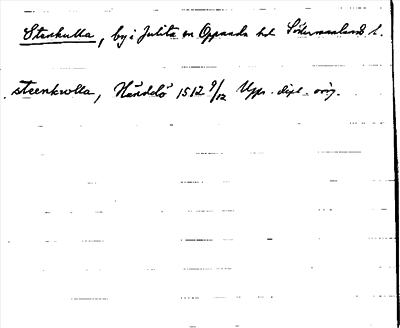 Stenkulla, by i Julita sn Oppunda hd Södermanlands l.
steenkwlla, Händelö 1512 9/12 Upps. dipl. orig.